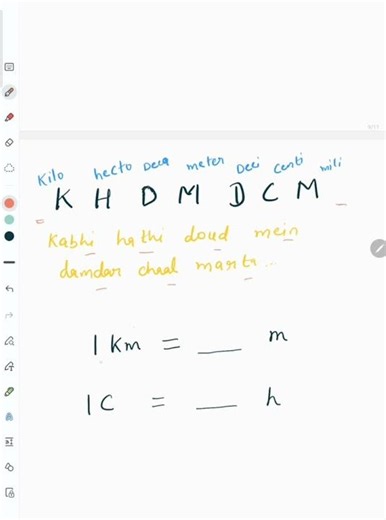 Kilo hecto Deca meter Deci centi mili
K H D M D C M
Kabhi hathi doud mein
damdar chaal
1 Km = __ m
1 C = __ h